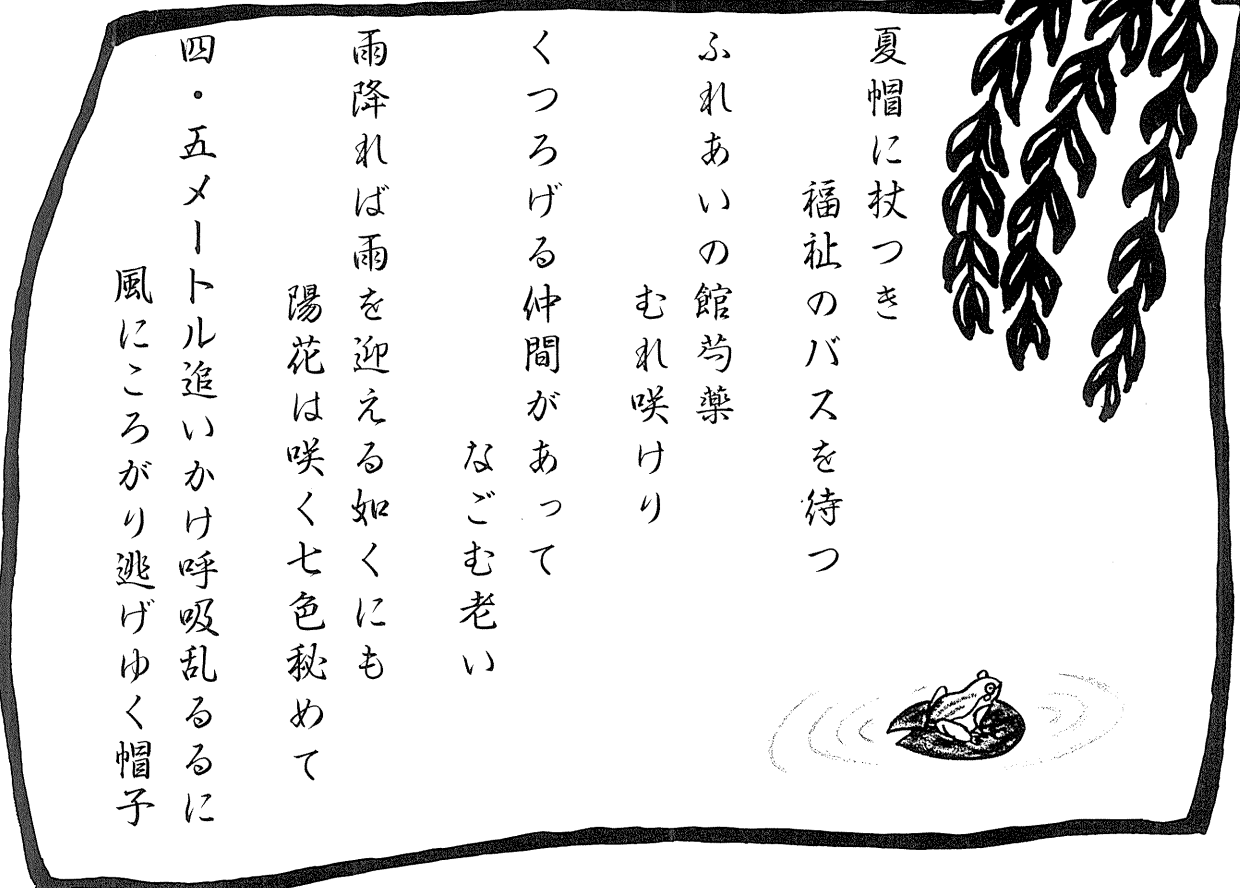 夏帽に杖つき
福祉のバスを待つ
ふれあいの館芍薬
むれ咲けり
くつろげる仲間があって
なごむ老い
雨降れば雨を迎える如くにも
陽花は咲く七色秘めて
四・五メートル追いかけ呼吸乱るるに
風にころがり逃げゆく帽子